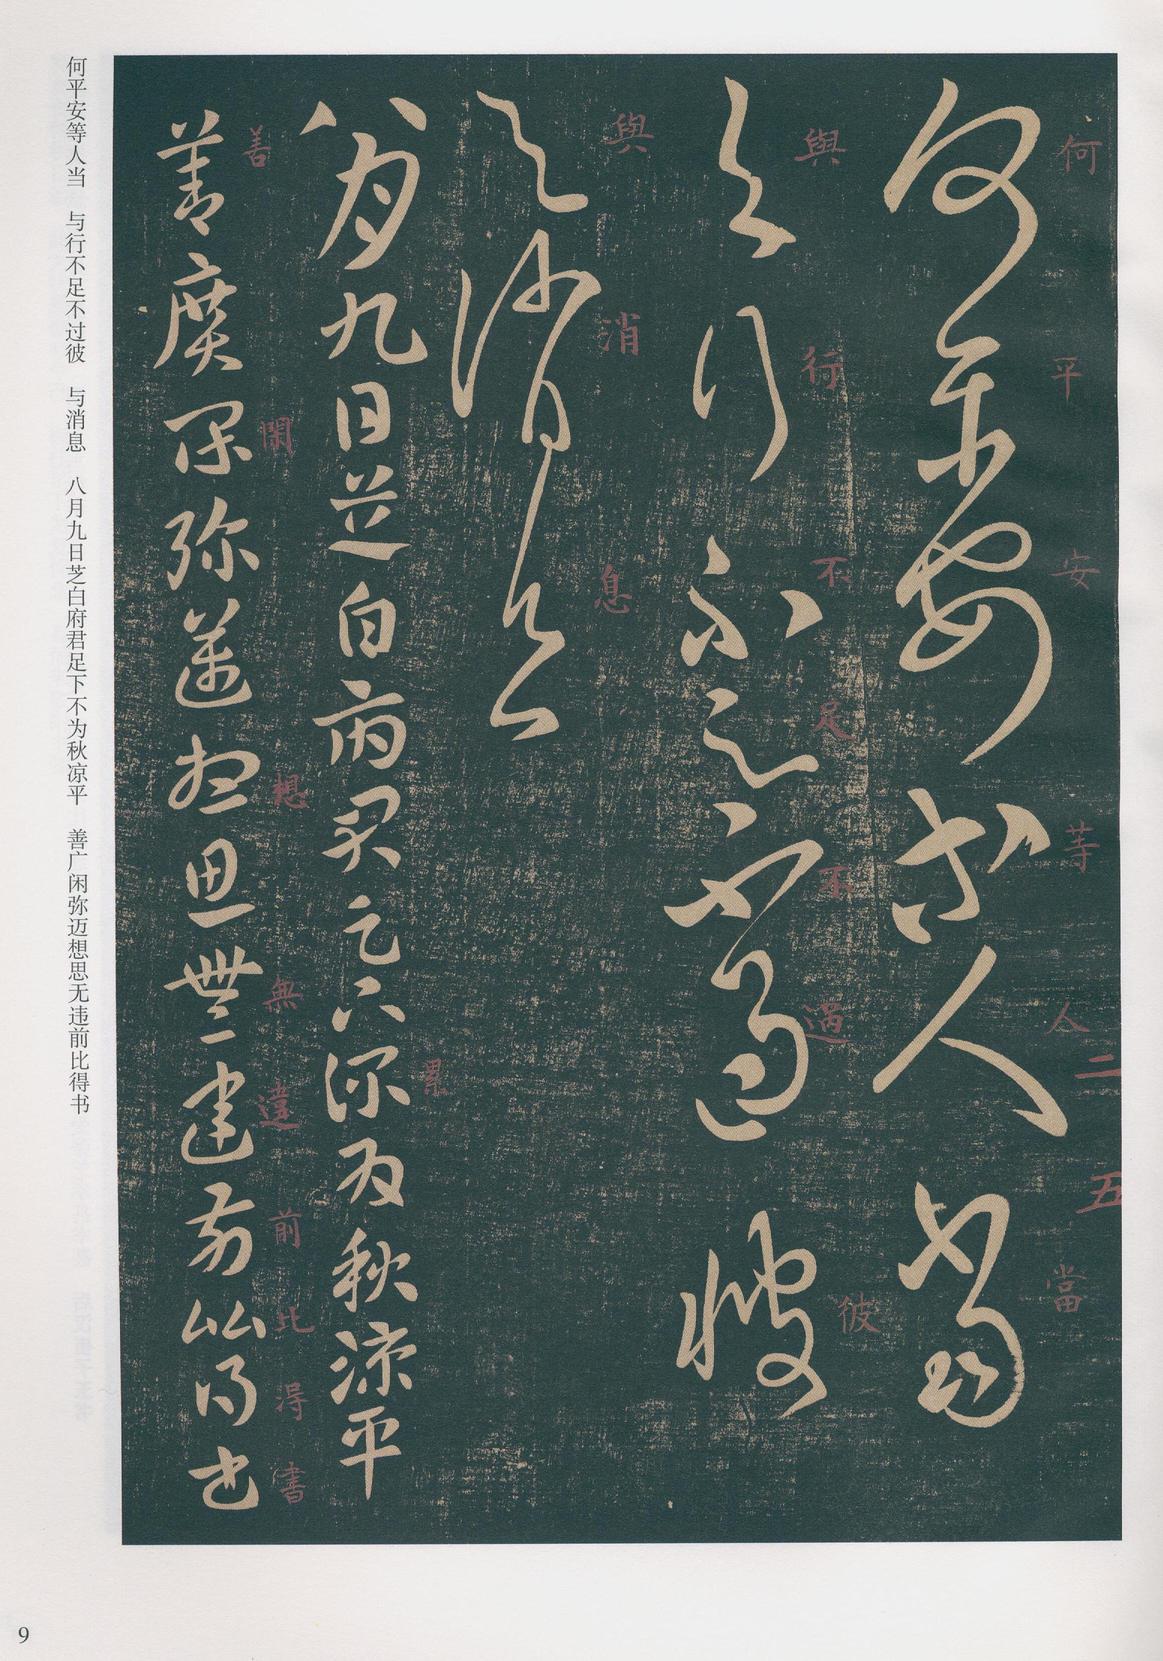 何平安等人当
与行不足不过彼
与消息
八月九日芝白府君足下不为秋凉平
善广闲弥迈想思无违前比得书
何平安等人當
與行不足不過彼
與消息
八月九日芝白府君足下深為秋涼平
善廣閑彌邁想思無違前比得書
何
平
安
等
人
二
五
當
與
行
不
足
不
過
彼
與
消
息
累
善
閑
想
無
違
前
比
得
書
9